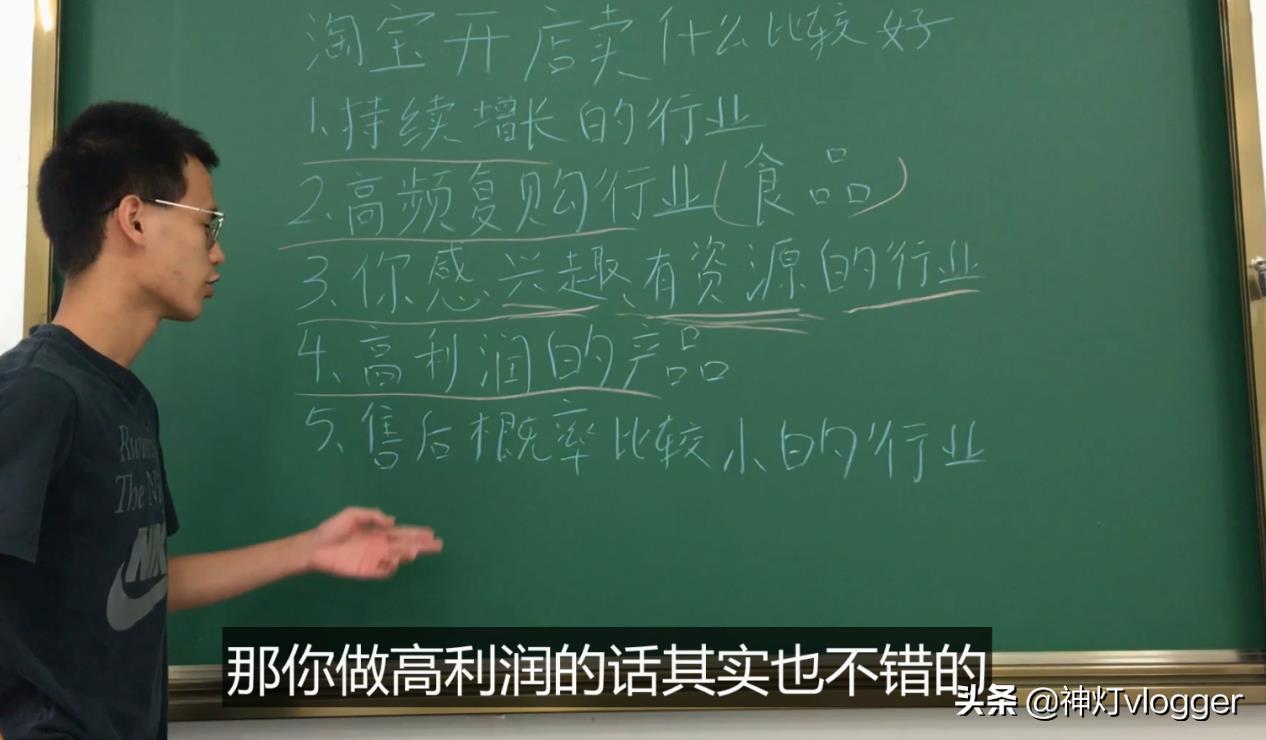 淘宝开店卖什么比较好
1.持续增长的行业
2.高频复购行业(食品)
3.你感兴趣、有资源的行业
4.高利润的产品
5.售后概率比较小的行业
The N
NIK
那你做高利润的话其实也不错的
头条 @神灯vlogger